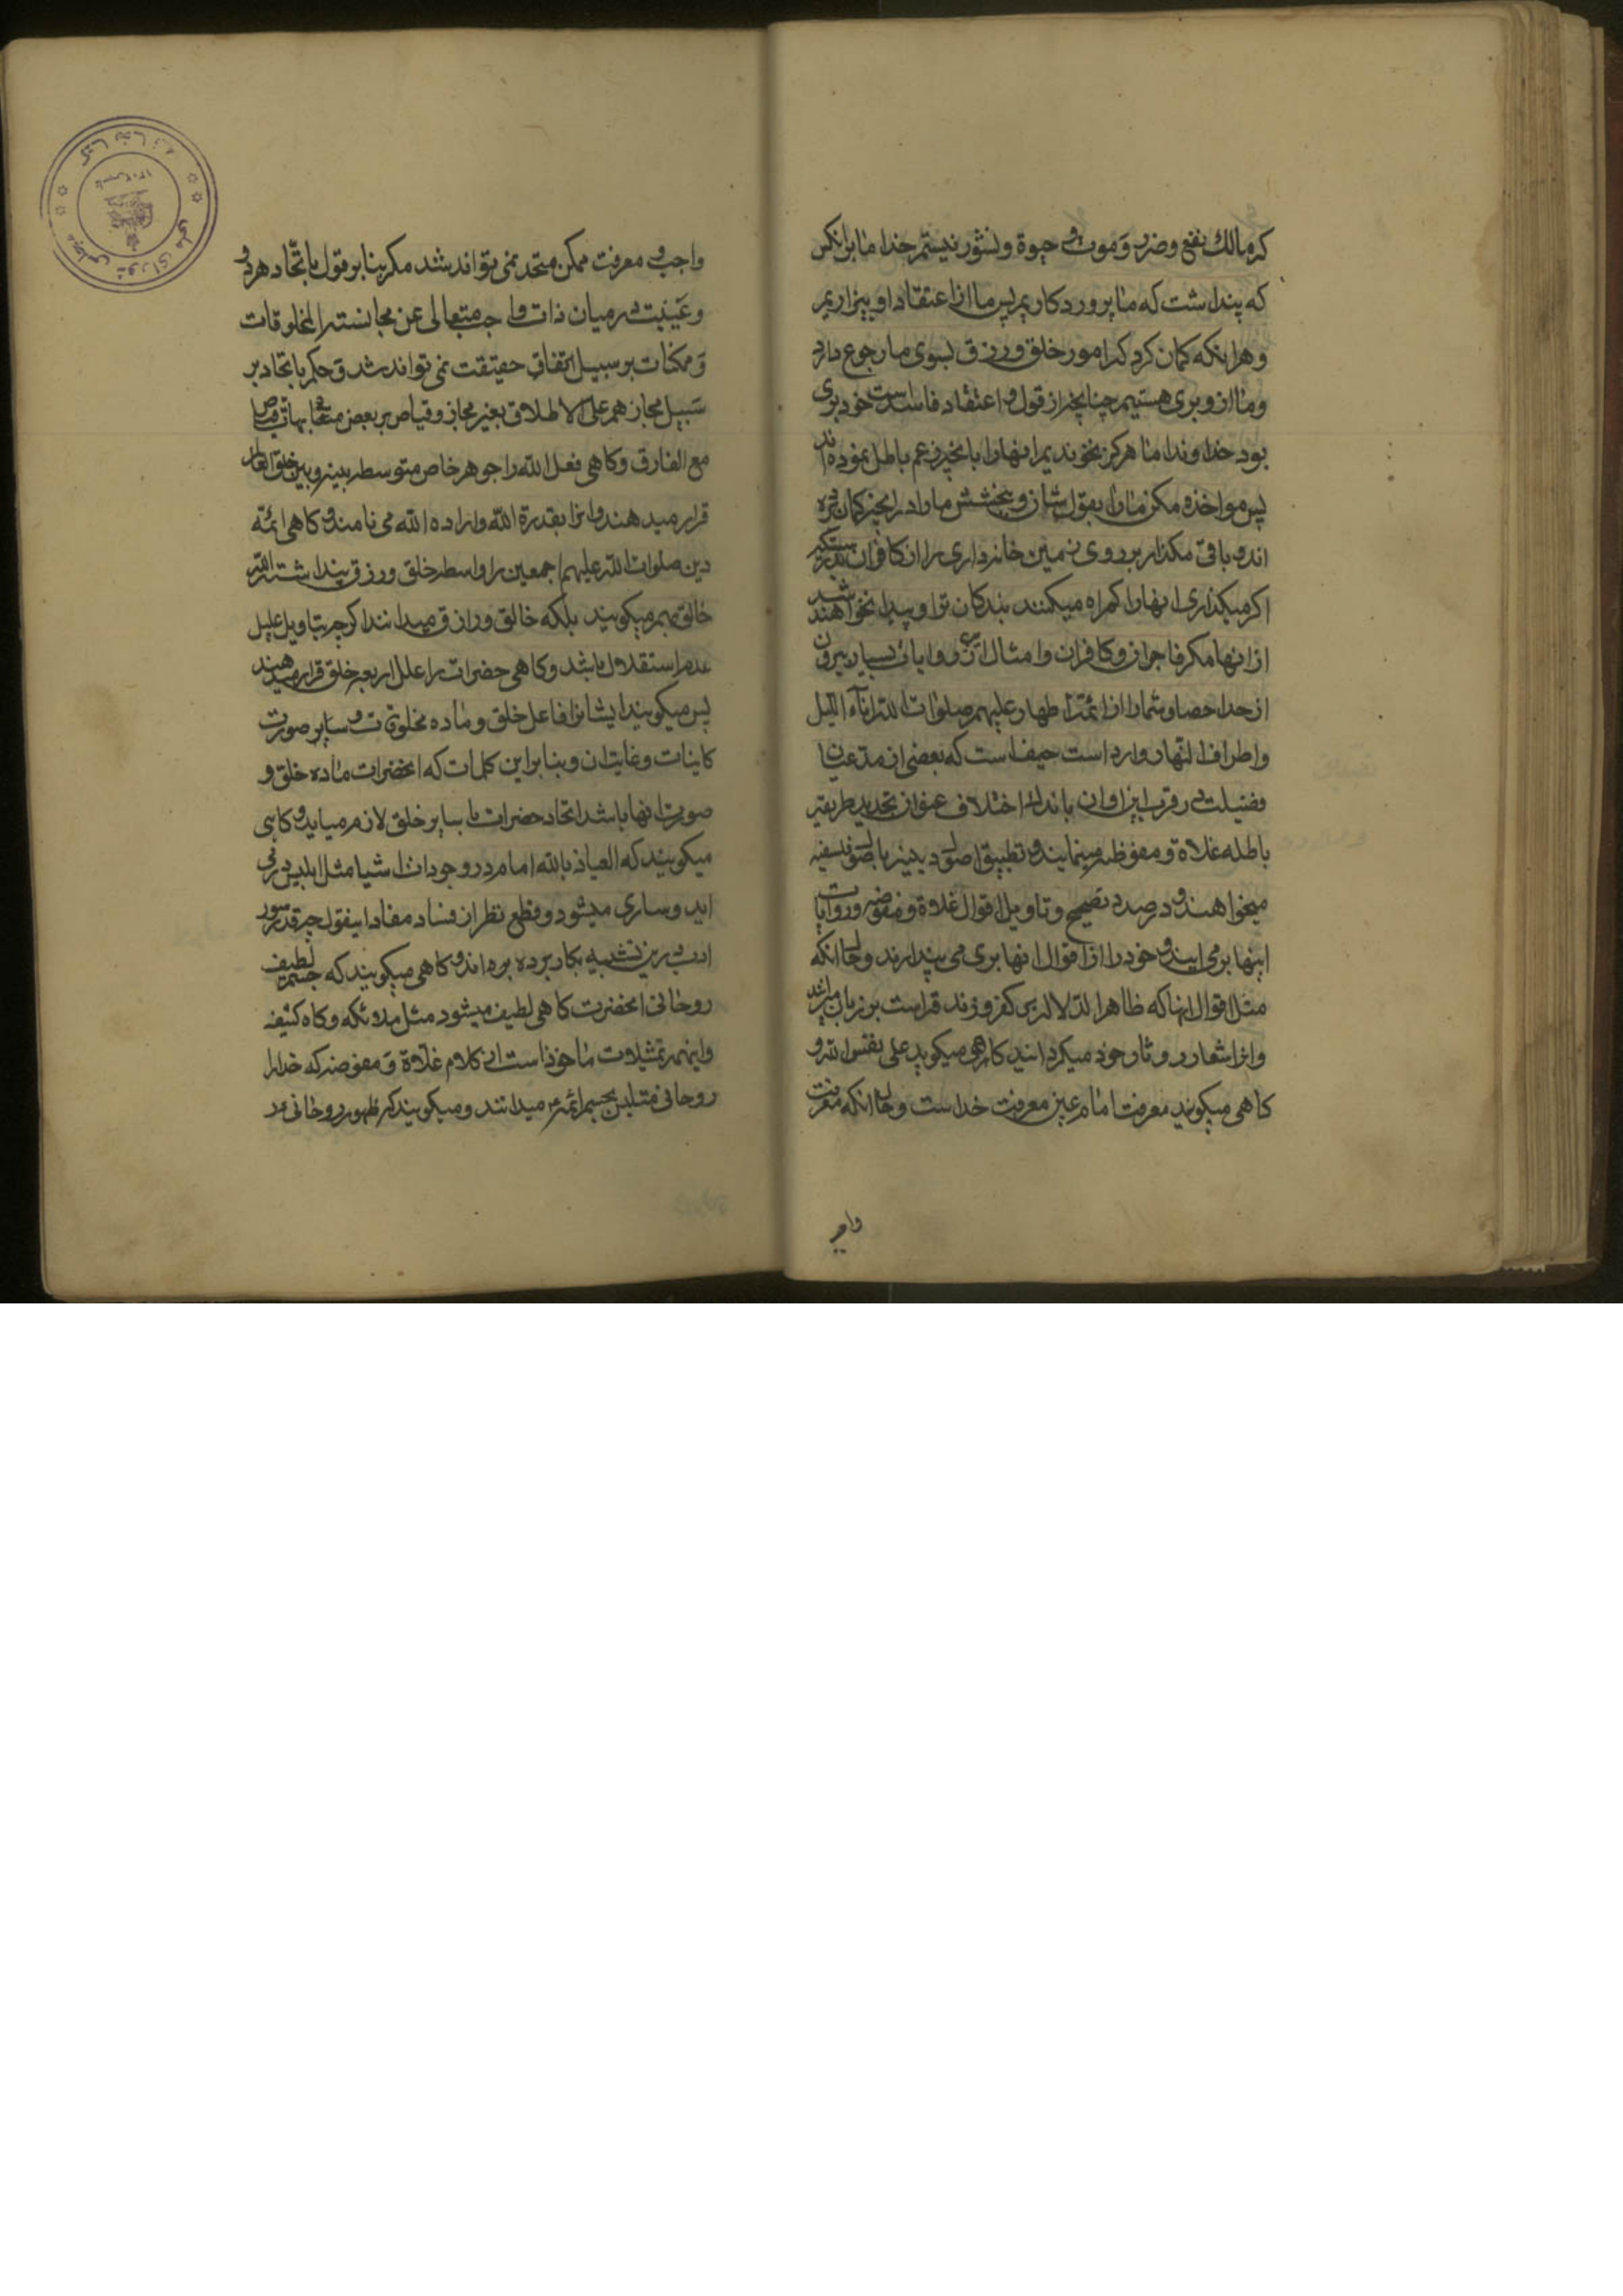 که مالک نفع و ضرر و موت و حیوة و نشور نیستم خدا ما برانکس
که پنداشت که ما پروردکاریم پس ما از اعتقاد او بیزاریم
و هرانکه کمان کرد که امور خلق و رزق بسوی ما رجوع دارد
و ما از و بری هستیم چنانچه از قول و اعتقاد فاسدست خود بری
بود خداوندا ما هرکز نخوندیم انهارا بانچیز زعم باطل نموده اند
پس مواخذه مکن مارا بقول شان و ببخش ماوا در انچیز کمان کرده
اند و باقی مکذار بر روی زمین خانه داری را از کافران بدرستیکه
اکر میکذاری انهارا کمراه میکنند بندکان ترا و پیدا نخواهند شد
از انها مکر فاجران و کافران و امثال این روایات بسیار بیرون
از حد احصا و شمار از ائمه اطهار علیهم صلوات الله اناء اللیل
و اطراف النهار وارد است حیف است که بعضی از مدعیان
فضیلت در قرب این اوان باندک اختلاف عنوان تجدید طریقه
باطله غلاة و مفوظه مینمایند و تطبیق اصول دینیه با اصول فلسفیه
میخواهند و در صدد تصحیح و تاویل اقوال غلاة و مفوضه و روایات
اینها بر می ایند و خود را از اقوال انها بری می پندارند و حال انکه
مثل اقوال انها که ظاهر الدلاله بر کفر و زندقه است بر زبان میرانند
و انرا شعار و دثار خود میکردانند کاهی میکوید علی نفس الله و
کاهی میکوند معرفت امام عین معرفت خداست و حال انکه معرفت
واجب
واجب و معرفت ممکن متحد نمی تواند شد مکر بنا بر قول باتحاد هر دو
و عینیت در میان ذات واجب متعالی عن مجانسته المخلوقات
و ممکنات بر سبیل اتفاق حقیقت نمی تواند شد و حکم باتحاد بر
سبیل مجاز هم علی الاطلاق بغیر مجاز و قیاس بر بعض متشابهات قیاس
مع الفارق و کاهی فعل الله را جوهر خاص متوسطه بینه و بین خلق العالم
قرار میدهند و انرا بقدرة الله و اراده الله می نامند و کاهی ائمه
دین صلوات الله علیهم اجمعین را واسطه خلق و رزق پنداشته الله
خالق بهم میکویند بلکه خالق و رازق میدانند اکرچه بتاویل علیل
عدم استقلال باشد و کاهی حضرات را علل اربعه خلق قرار میدهند
پس میکویند ایشانرا فاعل خلق و ماده مخلوقات و سایر صورت
کاینات و غایت ان و بنا بر این کلمات که انحضرات ماده خلق و
صورت انها باشد اتحاد حضرات با سایر خلق لازم میاید و کاهی
میکویند که العیاذ بالله امام در وجودات اشیا مثل ابلیس در می
اید و ساری میشود و قطع نظر از فساد مفاد اینقول چه قدر سوء
ادب درین تشبیه بکار برده بوداند و کاهی میکویند که جسم لطیف
روحانی انحضرت کاهی لطیف میشود مثل ملائکه و کاه کثیف
و اینهمه تمثیلات ماخوذ است از کلام غلاة و مفوضه که خدا را
روحانی متلبس بجسم ائمه ع میدانند و میکویند که ظهور روحانی در